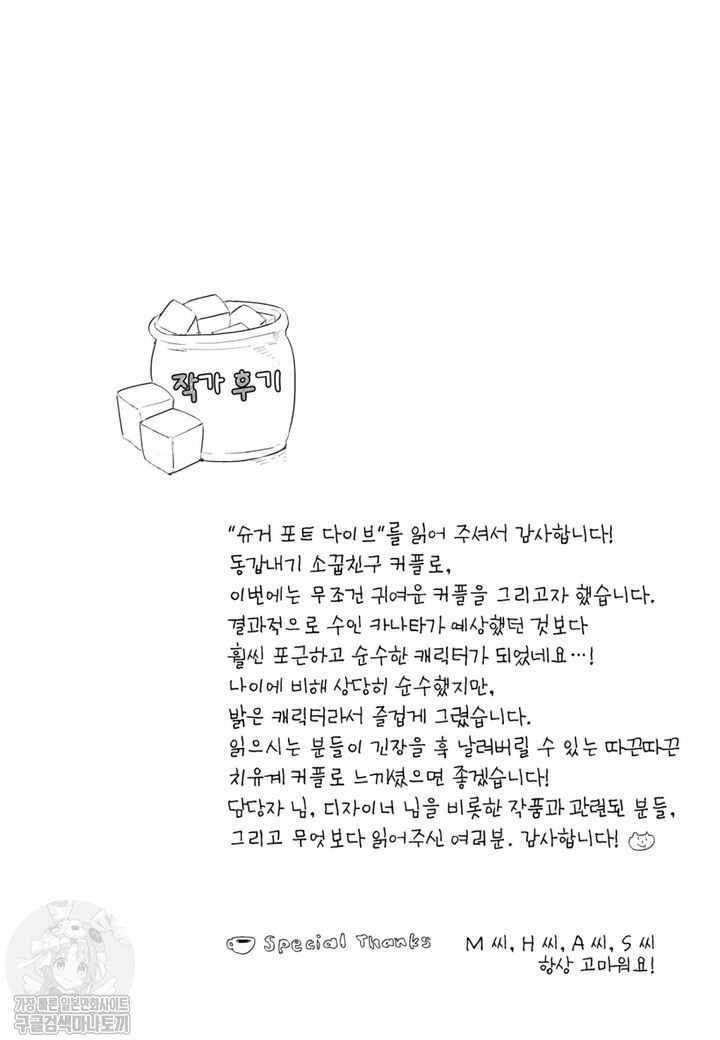 작가 후기
"슈거 포트 다이브"를 읽어 주셔서 감사합니다!
동갑내기 소꿉친구 커플로,
이번에는 무조건 귀여운 커플을 그리고자 했습니다.
결과적으로 수인 카나타가 예상했던 것보다
훨씬 포근하고 순수한 캐릭터가 되었네요…!
나이에 비해 상당히 순수했지만,
밝은 캐릭터라서 즐겁게 그렸습니다.
읽으시는 분들이 긴장을 훅 날려버릴 수 있는 따끈따끈
치유계 커플로 느끼셨으면 좋겠습니다!
담당자 님, 디자이너 님을 비롯한 작품과 관련된 분들,
그리고 무엇보다 읽어주신 여러분. 감사합니다!
Special Thanks M 씨, H 씨, A 씨, S 씨
항상 고마워요!
가장 빠른 일본만화사이트
구글검색마나토끼